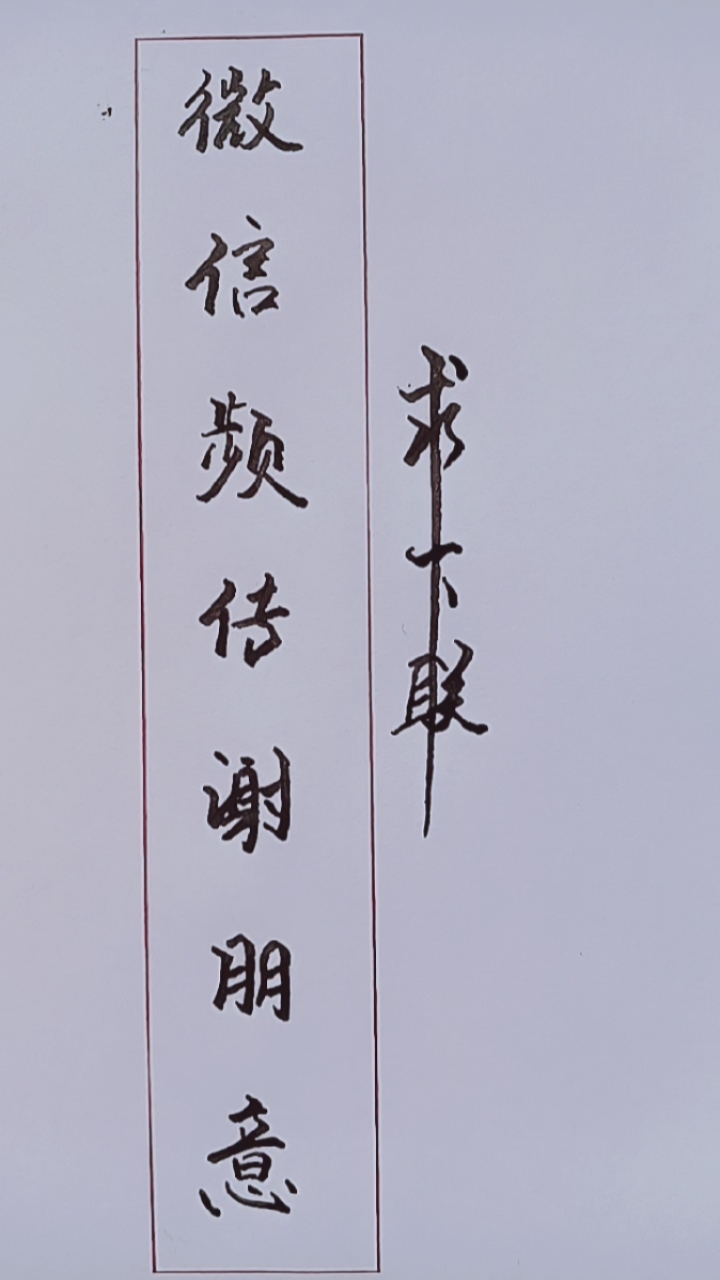 微信频传谢朋意
求下联